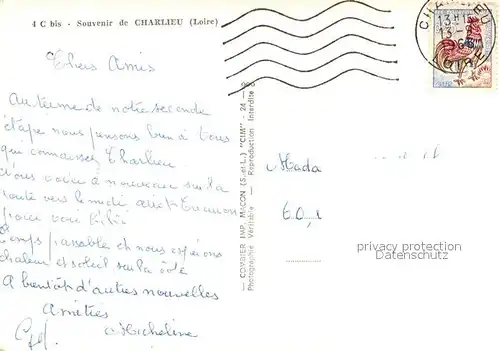 4 C bis - Souvenir de CHARLIEU (Loire)
Chers Amis
Au terme de notre seconde
étape nous pensons bien à Vous
qui connaissez Charlieu
Nous voici à nouveau sur la
route vers le midi avec
pour
Temps passable et nous espérons
chaleur et soleil sur la côte
A bientôt d'autres nouvelles
Amitiés
Micheline
COMBIER IMP. MACON (S.-et-L.) "CIM"
Photographie Véritable - Reproduction Interdite
CHARLIEU
13H15
LOIRE
Mada
60,
privacy protection
Datenschutz